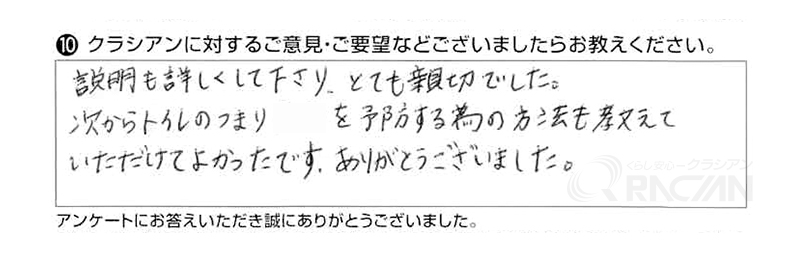 ❿ クラシアンに対するご意見・ご要望などございましたらお教えください。
説明も詳しくして下さり、とても親切でした。
次からトイレのつまり を予防する為の方法も教えて
いただけてよかったです。ありがとうございました。
くらし安心 クラシアン
QRACIAN
アンケートにお答えいただき誠にありがとうございました。